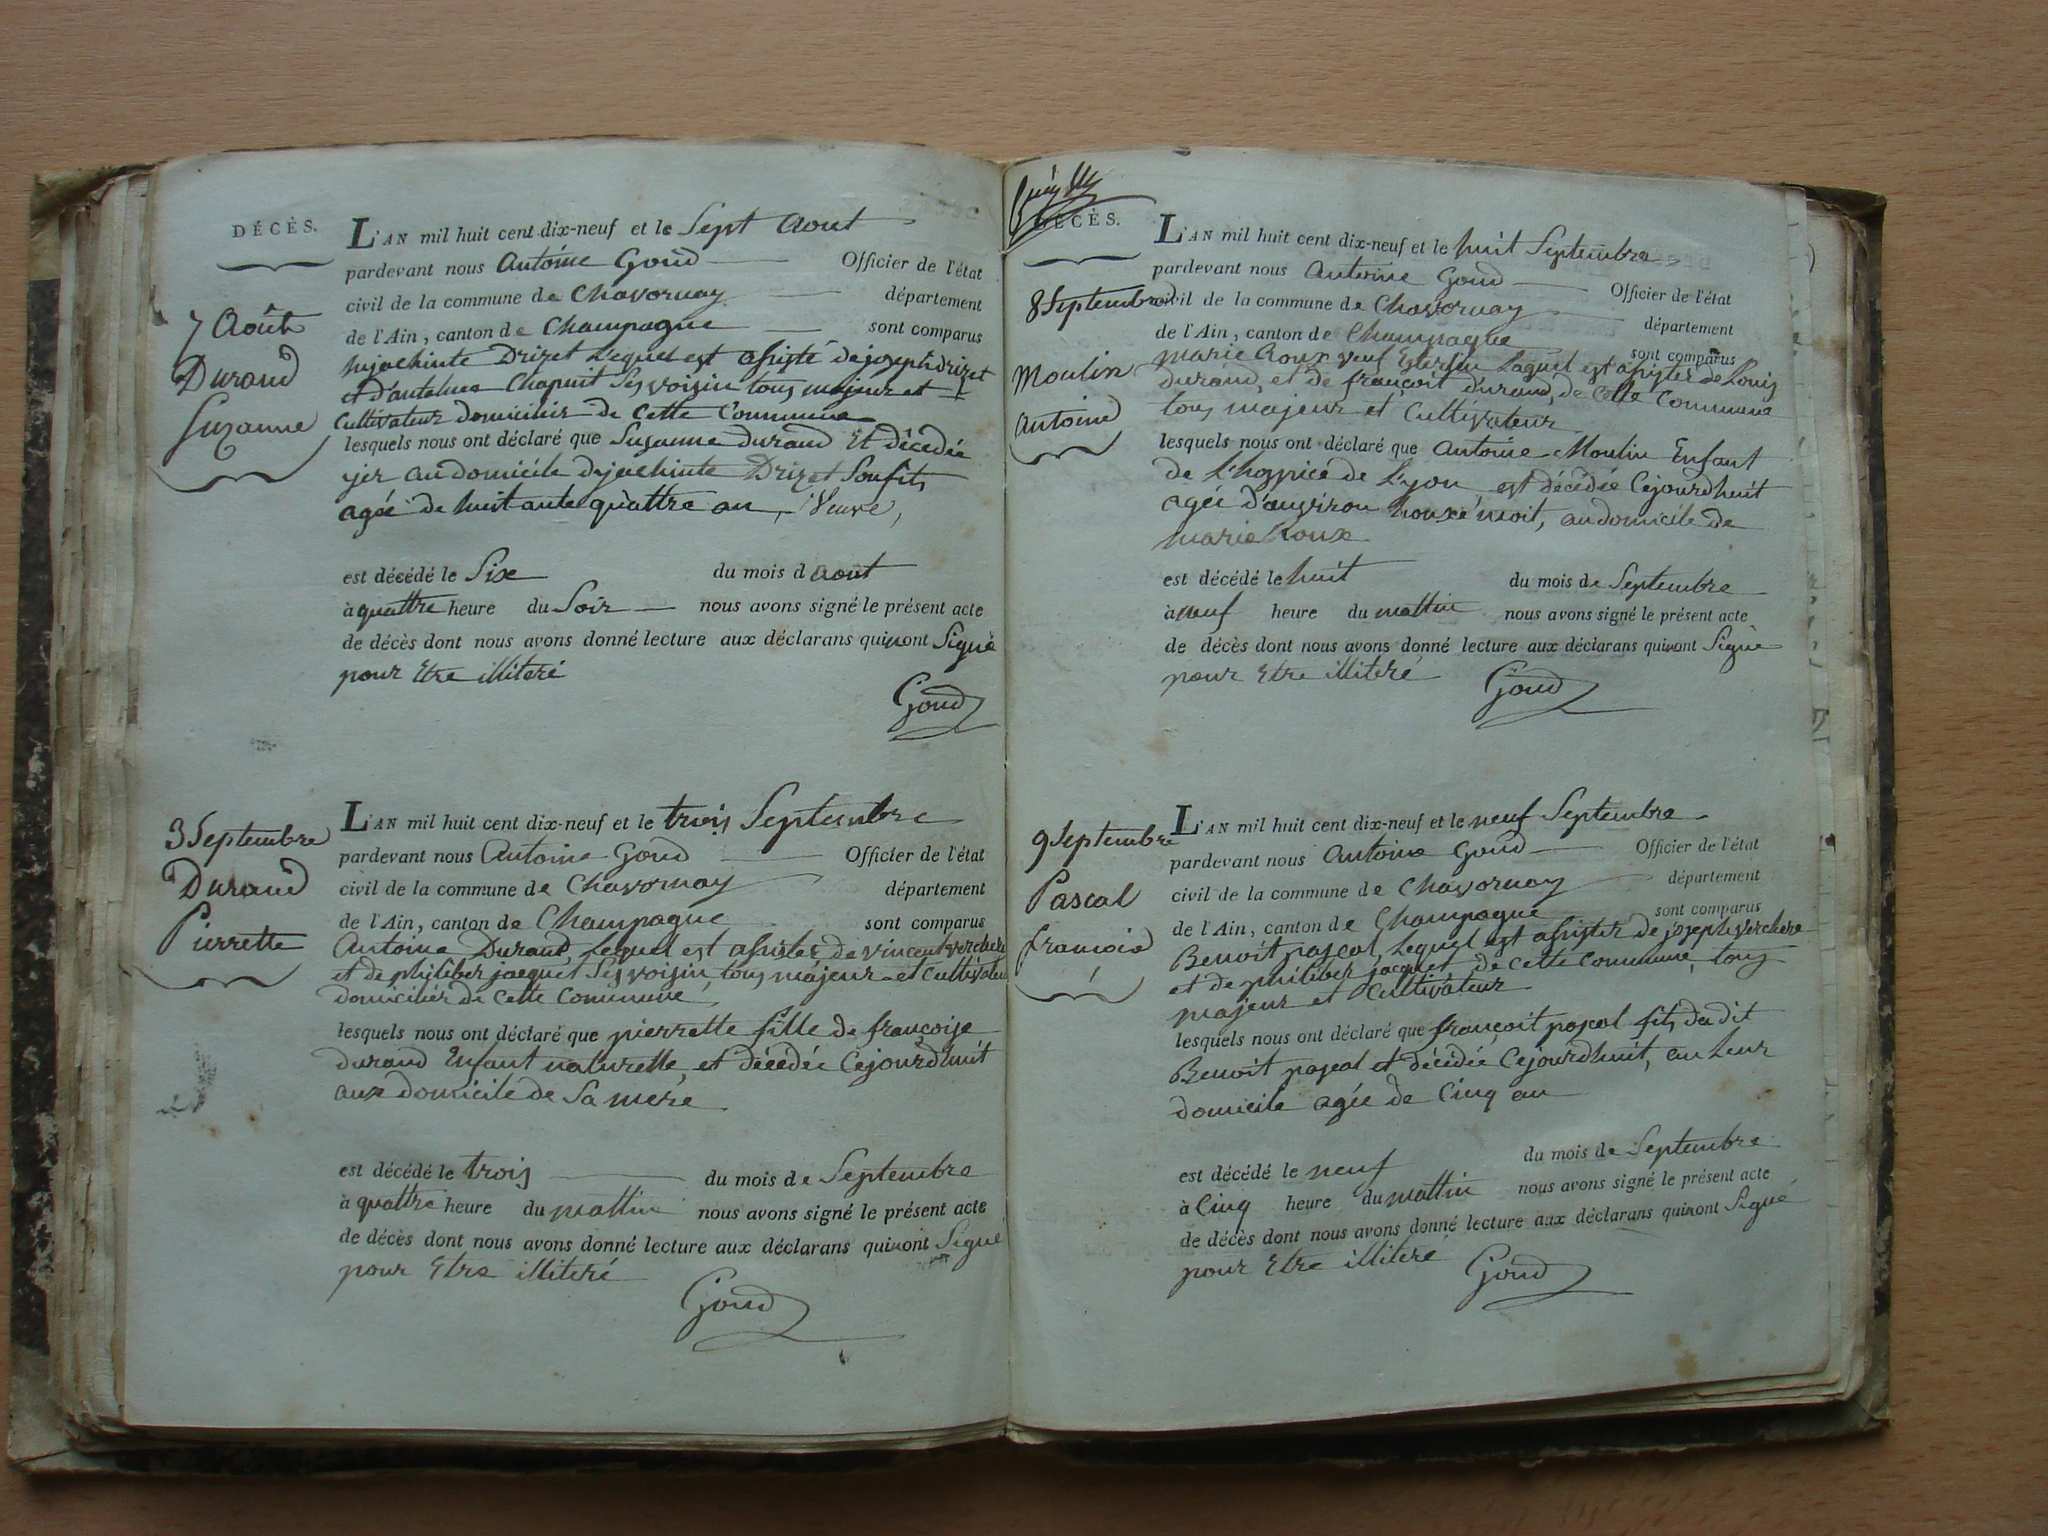 DÉCÈS.
7 Août
Durand
Suzanne
L'AN mil huit cent dix-neuf et le Sept Aout
pardevant nous Antoine Goud Officier de l'état
civil de la commune de Chavornay département
de l'Ain, canton de Champagne sont comparus
hyachinte Drizet lequel est asisté de joseph drizet
et d'antelme Chapuit Ses voisin tous majeur et
Cultivateur domicilier de Cette Commune
lesquels nous ont déclaré que Suzanne durand Et décedée
yer au domicile dejachinte Drizet Son fils
agée de huit ante quattre an, Veuve,
est décédé le Six du mois d aout
à quattre heure du Soir nous avons signé le présent acte
de décès dont nous avons donné lecture aux déclarans qui n ont Signé
pour Etre illiteré
Goud
3 Septembre
Durand
Pierrette
L'AN mil huit cent dix-neuf et le trois Septembre
pardevant nous Antoine Goud Officier de l'état
civil de la commune de Chavornay département
de l'Ain, canton de Champagne sont comparus
Antoine Durand, Lequel est asister de vincent verchere
et de philiber jacquet Ses voisin, tous majeur et Cultivateur
domicilier de Cette Commune
lesquels nous ont déclaré que pierrette fille de françoise
durand Enfant naturelle, et décedée Cejourdhuit
aux domicile de Sa mere
est décédé le trois du mois de Septembre
à quattre heure du mattin nous avons signé le présent acte
de décès dont nous avons donné lecture aux déclarans qui n ont Signé
pour Etre illiteré
Goud
DÉCÈS.
8 Septembre
Moulin
Antoine
L'AN mil huit cent dix-neuf et le huit Septembre
pardevant nous Antoine Goud Officier de l'état
civil de la commune de Chavornay département
de l'Ain, canton de Champagne sont comparus
marie Roux veuf Laquel est asister de Louis
durand, et de françoit durand, de Cette Commune
tous majeur et Cultivateur
lesquels nous ont déclaré que Antoine Moulin Enfant
de L'hospice de Lyon est décédée Cejourdhuit
agée d'anviron moit, au domicile de
marie Roux
est décédé le huit du mois de Septembre
à neuf heure du mattin nous avons signé le présent acte
de décès dont nous avons donné lecture aux déclarans qui n ont Signé
pour Etre illiteré
Goud
9 Septembre
Pascal
francois
L'AN mil huit cent dix-neuf et le neuf Septembre
pardevant nous Antoine Goud Officier de l'état
civil de la commune de Chavornay département
de l'Ain, canton de Champagne sont comparus
Benoit pascal, Lequel est asister de joseph verchere
et de philiber jacquet, de Cette Commune, tous
majeur et Cultivateur
lesquels nous ont déclaré que françoit pascal fils du dit
Benoit pascal et décédée Cejourdhuit, au Leur
domicile agée de Cinq an
est décédé le neuf du mois de Septembre
à Cinq heure du mattin nous avons signé le présent acte
de décès dont nous avons donné lecture aux déclarans qui n ont Signé
pour Etre illiteré
Goud